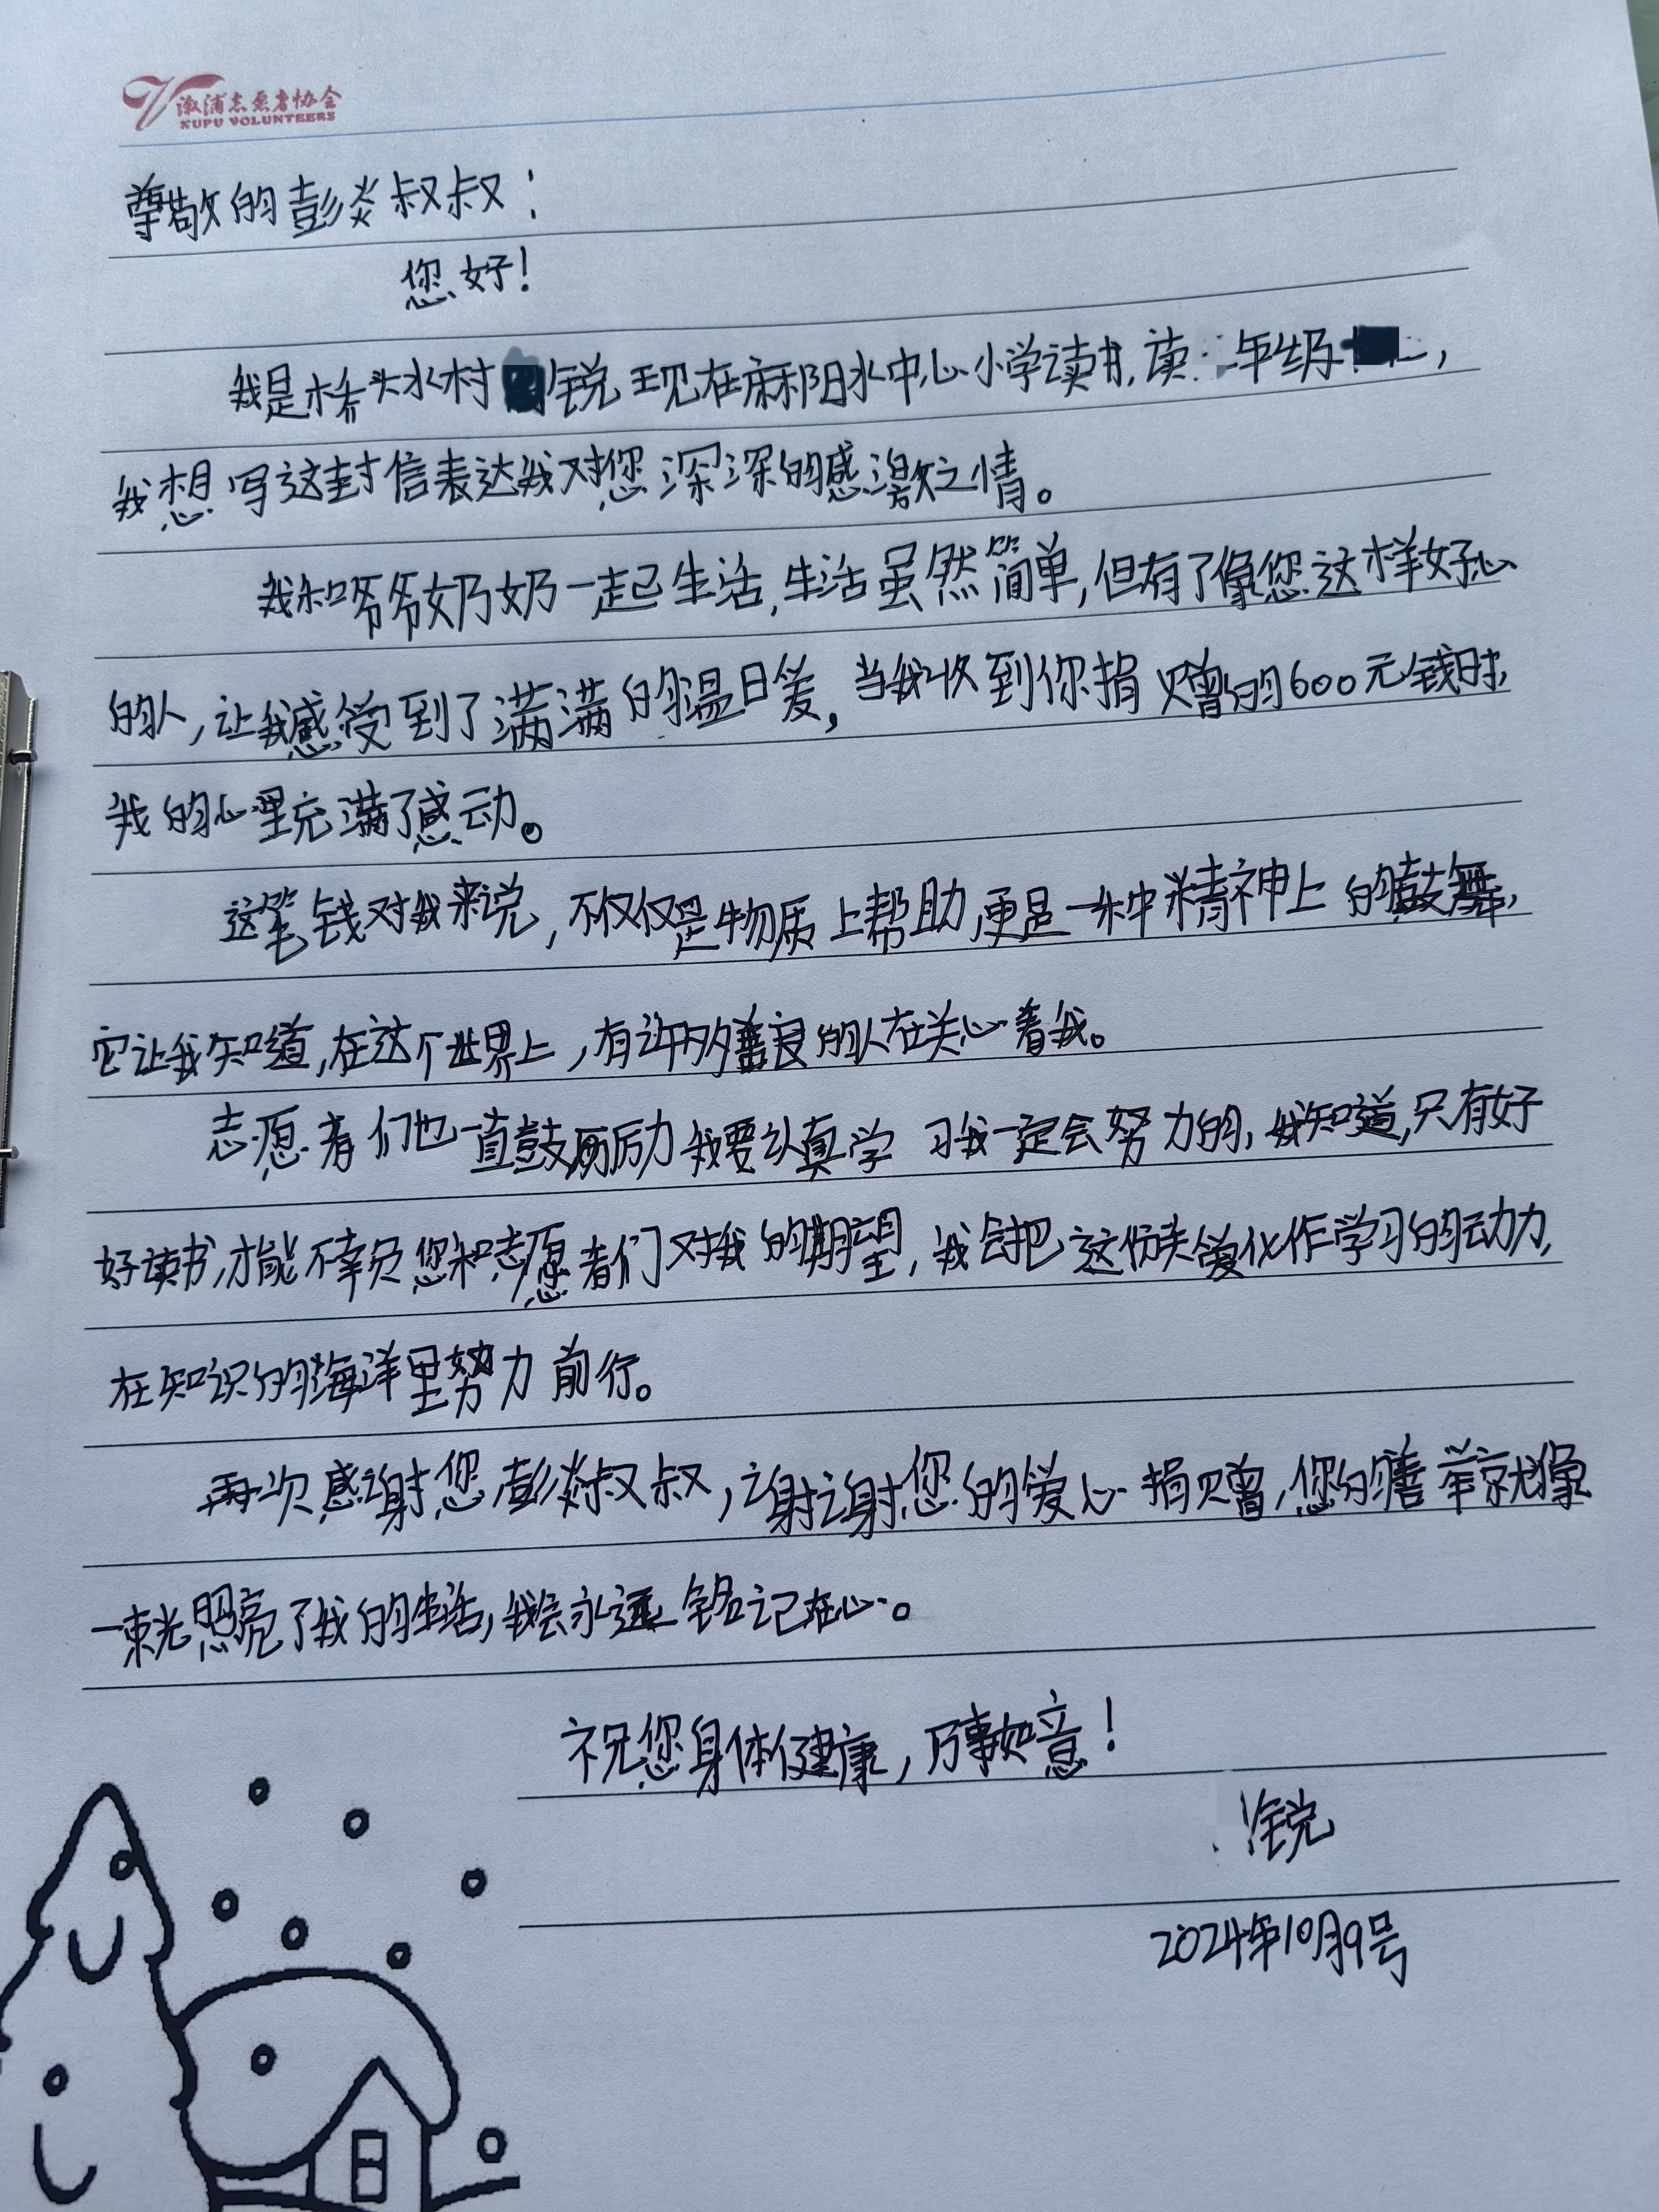 溆浦志愿者协会
XUPU VOLUNTEERS
尊敬的彭炎叔叔：
您好！
我是桥头水村锐现在麻阳水中心小学读书,读年级,
我想写这封信表达我对您深深的感激之情。
我和爷爷奶奶一起生活,生活虽然简单,但有了像您这样好心
的人,让我感受到了满满的温暖,当我收到你捐赠的600元钱时,
我的心里充满了感动。
这笔钱对我来说,不仅仅是物质上帮助,更是一种精神上的鼓舞,
它让我知道,在这个世界上,有许多善良的人在关心着我。
志愿者们也一直鼓励我要认真学习我一定会努力的,我知道,只有好
好读书,才能不幸负您和志愿者们对我的期望,我会把这份关爱化作学习的动力,
在知识的海洋里努力前行。
再次感谢您,彭炎叔叔,谢谢您的爱心捐赠,您的善举就像
一束光照亮了我的生活,我会永远铭记在心。
祝您身体健康,万事如意!
锐
2024年10月9号